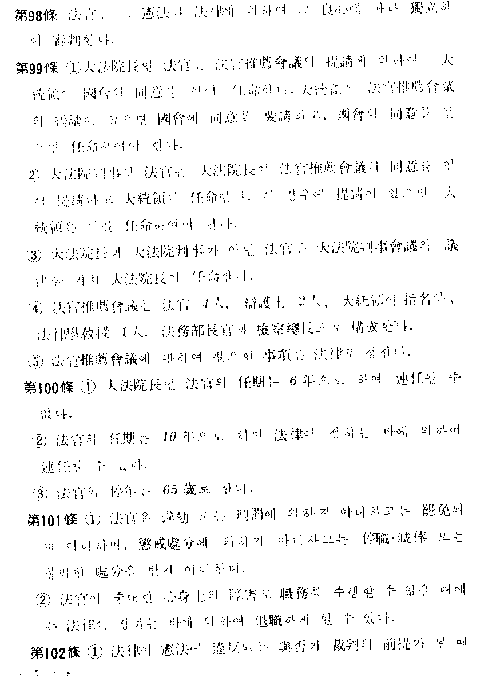 第98條 法官 憲法과 法律에 의하여 그 良心에 따라 獨立하
여 審判한다.
第99條 ①大法院長인 法官은 法官推薦會議의 提請에 의하여 大
統領이 國會의 同意를 얻어 任命한다. 大統領은 法官推薦會議
의 提請이 있으면 國會에 同意를 要請하고, 國會의 同意를
任命하여야 한다.
② 大法院判事인 法官은 大法院長이 法官推薦會議의 同意를 얻
어 提請하고 大統領이 任命한다. 이 경우에 提請이 있으면 大
統領은 任命하여야 한다.
③ 大法院長과 大法院判事가 아닌 法官은 大法院判事會議의 議
決을 거쳐 大法院長이 任命한다.
④ 法官推薦會議는 法官 4人, 辯護士 2人, 大統領이 指名하는
法律學敎授 1人, 法務部長官과 檢察總長으로 構成한다.
⑤ 法官推薦會議에 관하여 필요한 事項은 法律로 정한다.
第100條 ① 大法院長인 法官의 任期는 6年으로 하며 連任될 수
없다.
② 法官의 任期는 10年으로 하며 法律이 정하는 바에 의하여
連任될 수 있다.
③ 法官의 停年은 65歲로 한다.
第101條 ① 法官은 彈劾 또는 刑罰에 의하지 아니하고는 罷免되
지 아니하며, 懲戒處分에 의하지 아니하고는 停職·減俸 또는
불리한 處分을 받지 아니한다.
② 法官이 중대한 心身上의 障害로 職務를 수행할 수 없을 때에
는 法律이 정하는 바에 의하여 退職하게 할 수 있다.
第102條 ① 法律이 憲法에 違反되는 與否가 裁判의 前提가 된 때